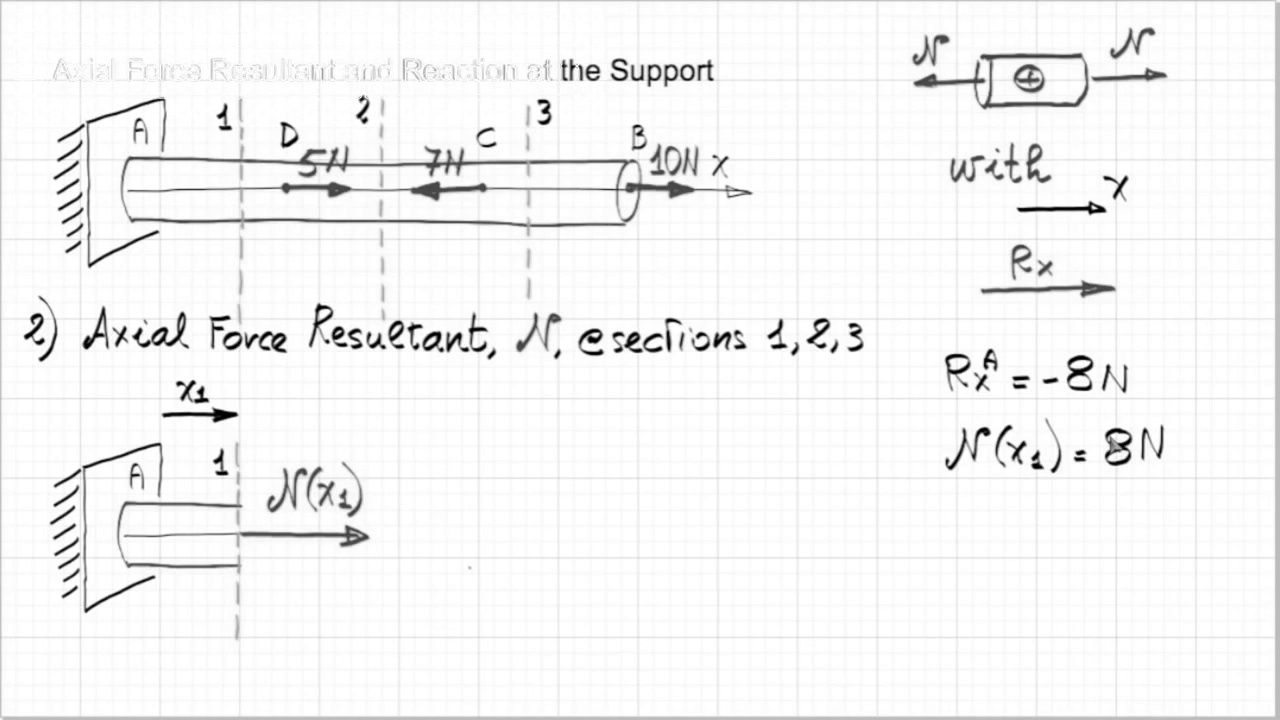 Axial Force Resultant and Reaction at the Support
N N
+
1 2 3
A D 5N 7N C B 10N x
with
x
Rx
2) Axial Force Resultant, N, @ sections 1, 2, 3
RxA = -8N
x1
N(x1) = 8N
A 1 N(x1)